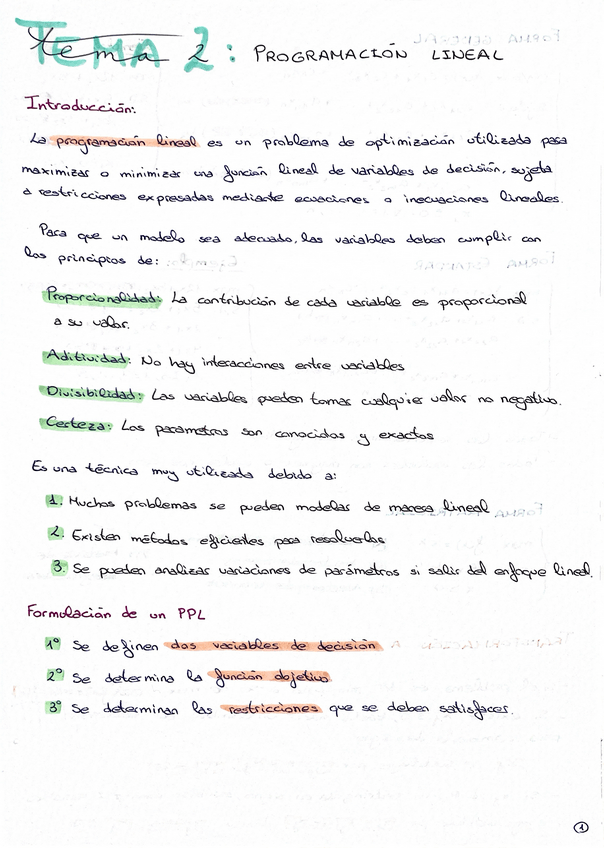 TEMA 2: PROGRAMACIÓN LINEAL
Introducción:
La programación lineal es un problema de optimización utilizada para
maximizar o minimizar una función lineal de variables de decisión, sujeta
a restricciones expresadas mediante ecuaciones o inecuaciones lineales.
Para que un modelo sea adecuado, las variables deben cumplir con
los principios de:
Proporcionalidad: La contribución de cada variable es proporcional
a su valor.
Aditividad: No hay interacciones entre variables
Divisibilidad: Las variables pueden tomar cualquier valor no negativo.
Certeza: Los parámetros son conocidos y exactos
Es una técnica muy utilizada debido a:
1. Muchos problemas se pueden modelar de maresa lineal
2. Existen métodos eficientes para resolverlos
3. Se pueden analizar variaciones de parámetros si salir del enfoque lineal.
Formulación de un PPL
1º Se definen dos variables de decisión
2º Se determina la función objetivo
3º Se determinan las restricciones que se deben satisfacer.
1